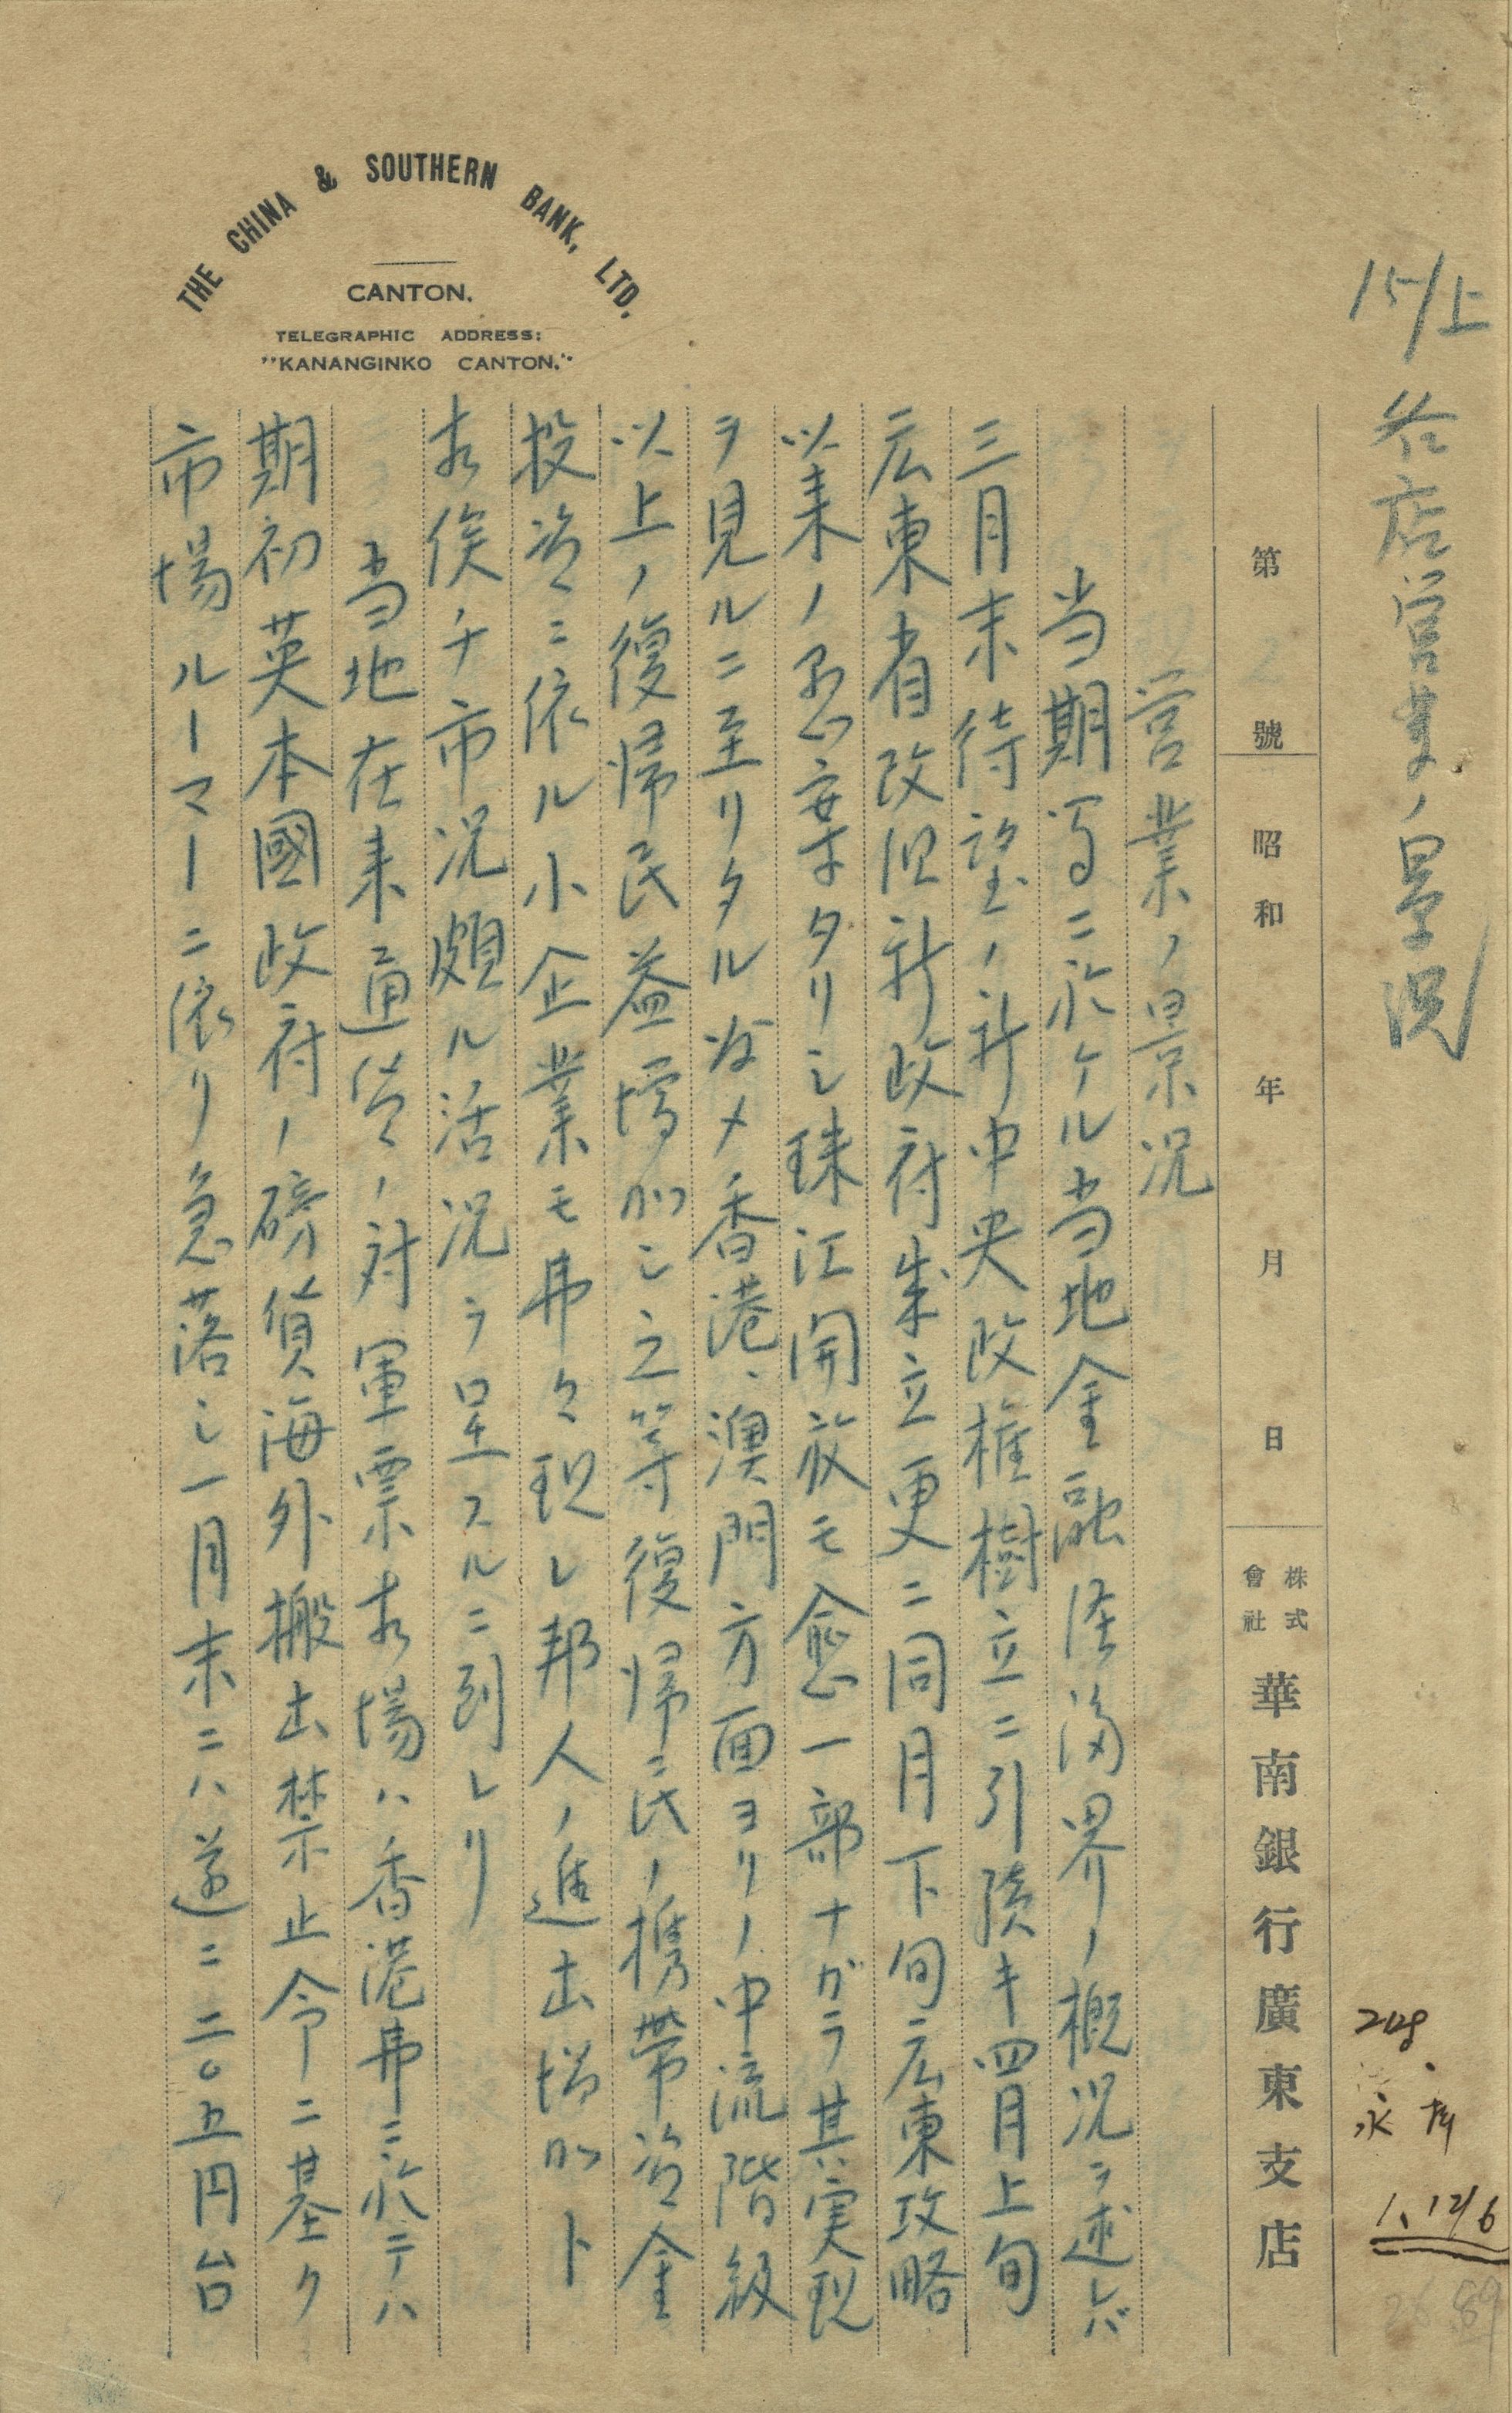 15/上 各店営業ノ景況
第 2 號 昭和 年 月 日 株式會社 華南銀行廣東支店
248
永
1,126
THE CHINA & SOUTHERN BANK, LTD.
CANTON.
TELEGRAPHIC ADDRESS:
"KANANGINKO CANTON."
営業ノ景況
当期間ニ於ケル当地金融経済界ノ概況ヲ述レバ
三月末待望ノ新中央政権樹立ニ引続キ四月上旬
広東省政府新政府成立更ニ同月下旬広東攻略
以来ノ懸案タリシ珠江開放モ愈一部ナガラ其実現
ヲ見ルニ至リタル為メ香港、澳門方面ヨリノ中流階級
以上ノ復帰民益増加シ之等復帰民ノ携帯資金
投資ニ依ル小企業モ弗々現レ邦人ノ進出増加ト
相俟チ市況頗ル活況ヲ呈スルニ到レリ
当地在来通貨ノ対軍票相場ハ香港弗ニ於テハ
期初英本國政府ノ磅貨海外搬出禁止令ニ基ク
市場ルーマーニ依リ急落シ一月末ニハ遂ニ二〇五円台